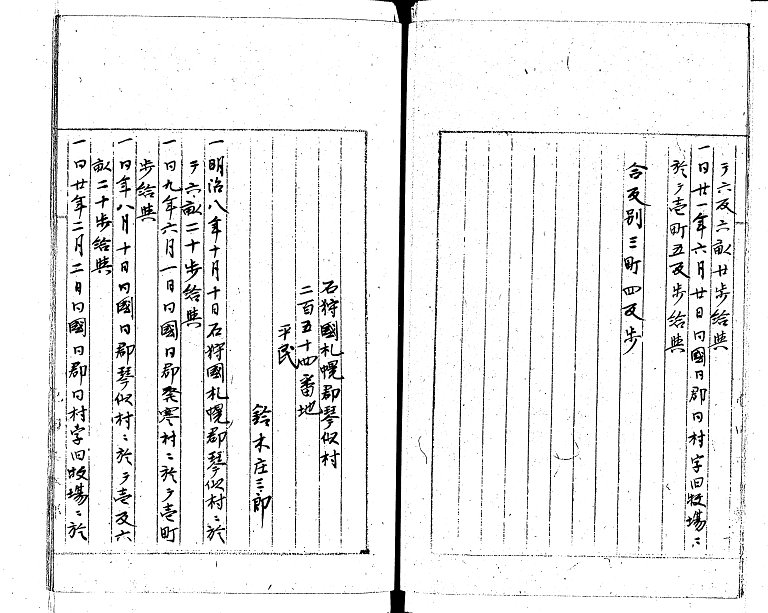 ヲ六反六畝廿歩給與
一同廿一年六月廿日同國同郡同村字旧牧場ニ
於テ壱町五反歩給與
合反別三町四反歩
石狩國札幌郡琴似村
二百五十四番地
平民
鈴木庄三郎
一明治八年十月十日石狩國札幌郡琴似村ニ於
テ六畝二十歩給與
一同九年六月一日同國同郡発寒村ニ於テ壱町
歩給與
一同年八月十日同國同郡琴似村ニ於テ壱反六
畝二十歩給與
一同廿年二月二日同國同郡同村字旧牧場ニ於